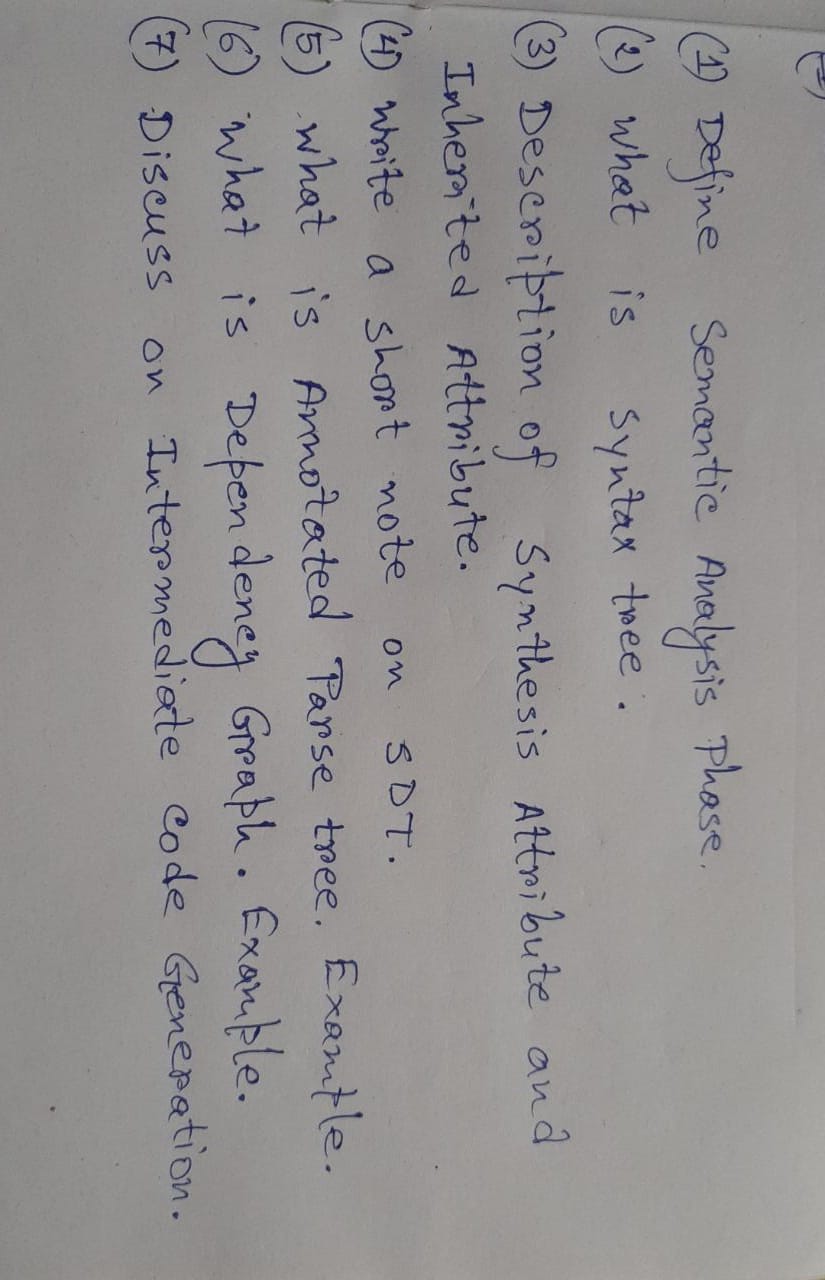 (1) Define Semantic Analysis Phase.
(2) What is Syntax tree.
(3) Description of Synthesis Attribute and
Inherited Attribute.
(4) Write a short note on SDT.
(5) What is Annotated Parse tree. Example.
(6) What is Dependency Graph. Example.
(7) Discuss on Intermediate code Generation.